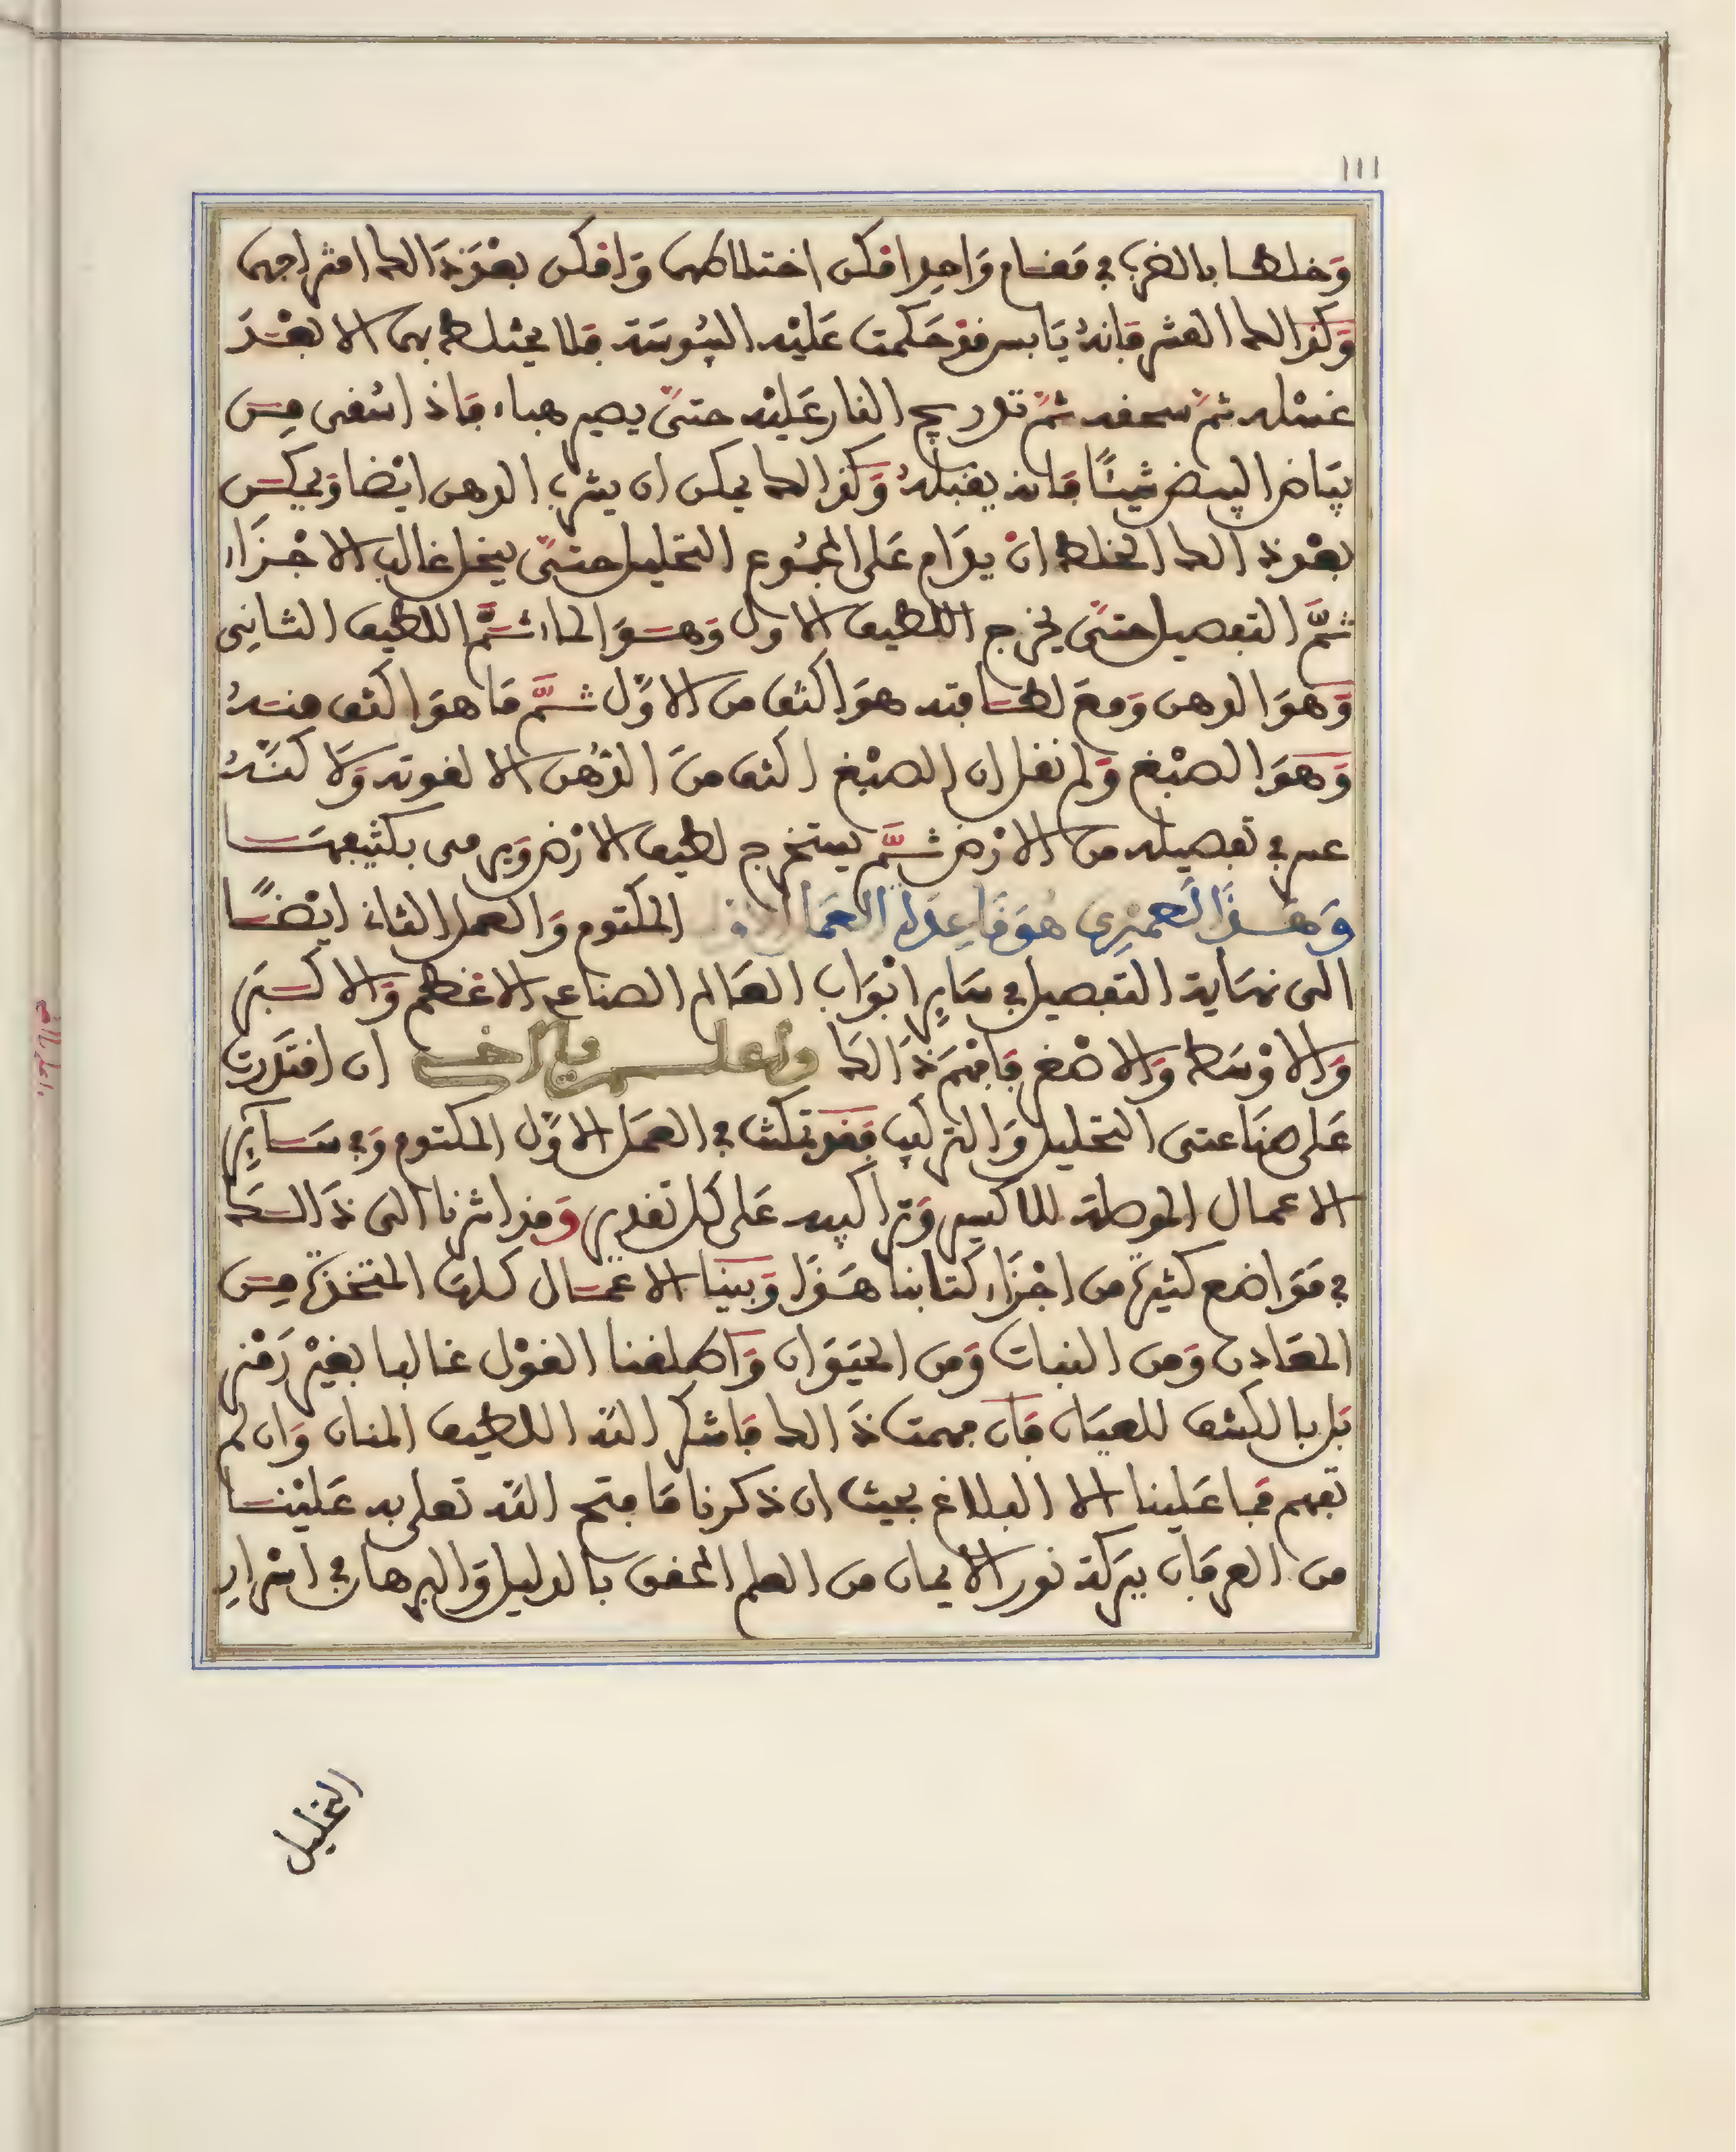 ١١١
وَخلطها بالضرب في مقام وَاحِد امكن اختلاطهما وَامكن بعْدَ ذَالك امتزاجهما
وَكذالك القشر فَانهُ يَابس قد حَكمت عَليْه اليبُوسَة فلا يختلط بهما الا بعْدَ
غسْله ثمّ سحقه ثمّ تدريج النار عَليْه حتىّ يصير هباء فاذا سُقى مِن
بيَاض البيض شيئًا فانه يقبلهُ وَكذالك يمكن ان يشرب الدهن ايْضا وَيمكن
بعْد ذالك الخلط انْ يدَام عَلى المجمُوع التحليل حتىّ ينحل غالب الاجْزَاء
ثمَّ التفصيل حتىّ يخرج اللطيف الاول وَهوَ الماء ثمَّ اللطيف الثاني
وَهوَ الدهن وَمعَ لطافته هوَ اكثف من الاوّل ثمَّ مَا هوَ اكثف منهُ
وَهوَ الصبْغ وَلم نقل ان الصبْغ اكثف منَ الدّهْن الا لقوته وَلاكنّهُ
عسر في تفصيله من الارْض ثمَّ يستخرج لطيف الارْض وَيرمى بكثيفهَا
وَهَذَا لعَمْرِي هُوَ قَاعِدَة العَمَل الاول المكتوم وَالعمل الثاني ايْضًا
الى نهَاية التفصيل في سَايِر ابْوَاب العَالم الصناعي الاعْظم وَالاكبَر
وَالاوْسَط وَالاصْغر فَافهَم ذَالك واعلم يا اخي ان اقتدَرت
عَلى صنَاعتى التحليل وَالتركيب فقد تمكنت في العمَل الاوّل المكتوم وَفي سَايِر
الاعمال الموصلة للاكسير وَتراكيبه عَلى كل تقدير وَقد اشرنا الى ذَالك
في مَوَاضع كثيرة من اجْزَاء كتابنا هَذَا وَبينا الاعْمال كلها المتخذة مِن
المعَادن وَمن النبات وَمن الحيَوَان وَاطلقنا القوْل غالبا بغيْر رَمْز
بَل بالكشف للعيَان فَان فهمت ذَالك فَاشكر اللّه اللطيف المنان وَان لم
تفهم فما عَلينا الا البلاغ بحيث ان ذكرنا مَا فتح اللّه تعلى به عَليْنا
من العرفَان ببَركة نور الايمان من العلم المحقق بالدليل وَالبرهان في اسْرَار
التحليل